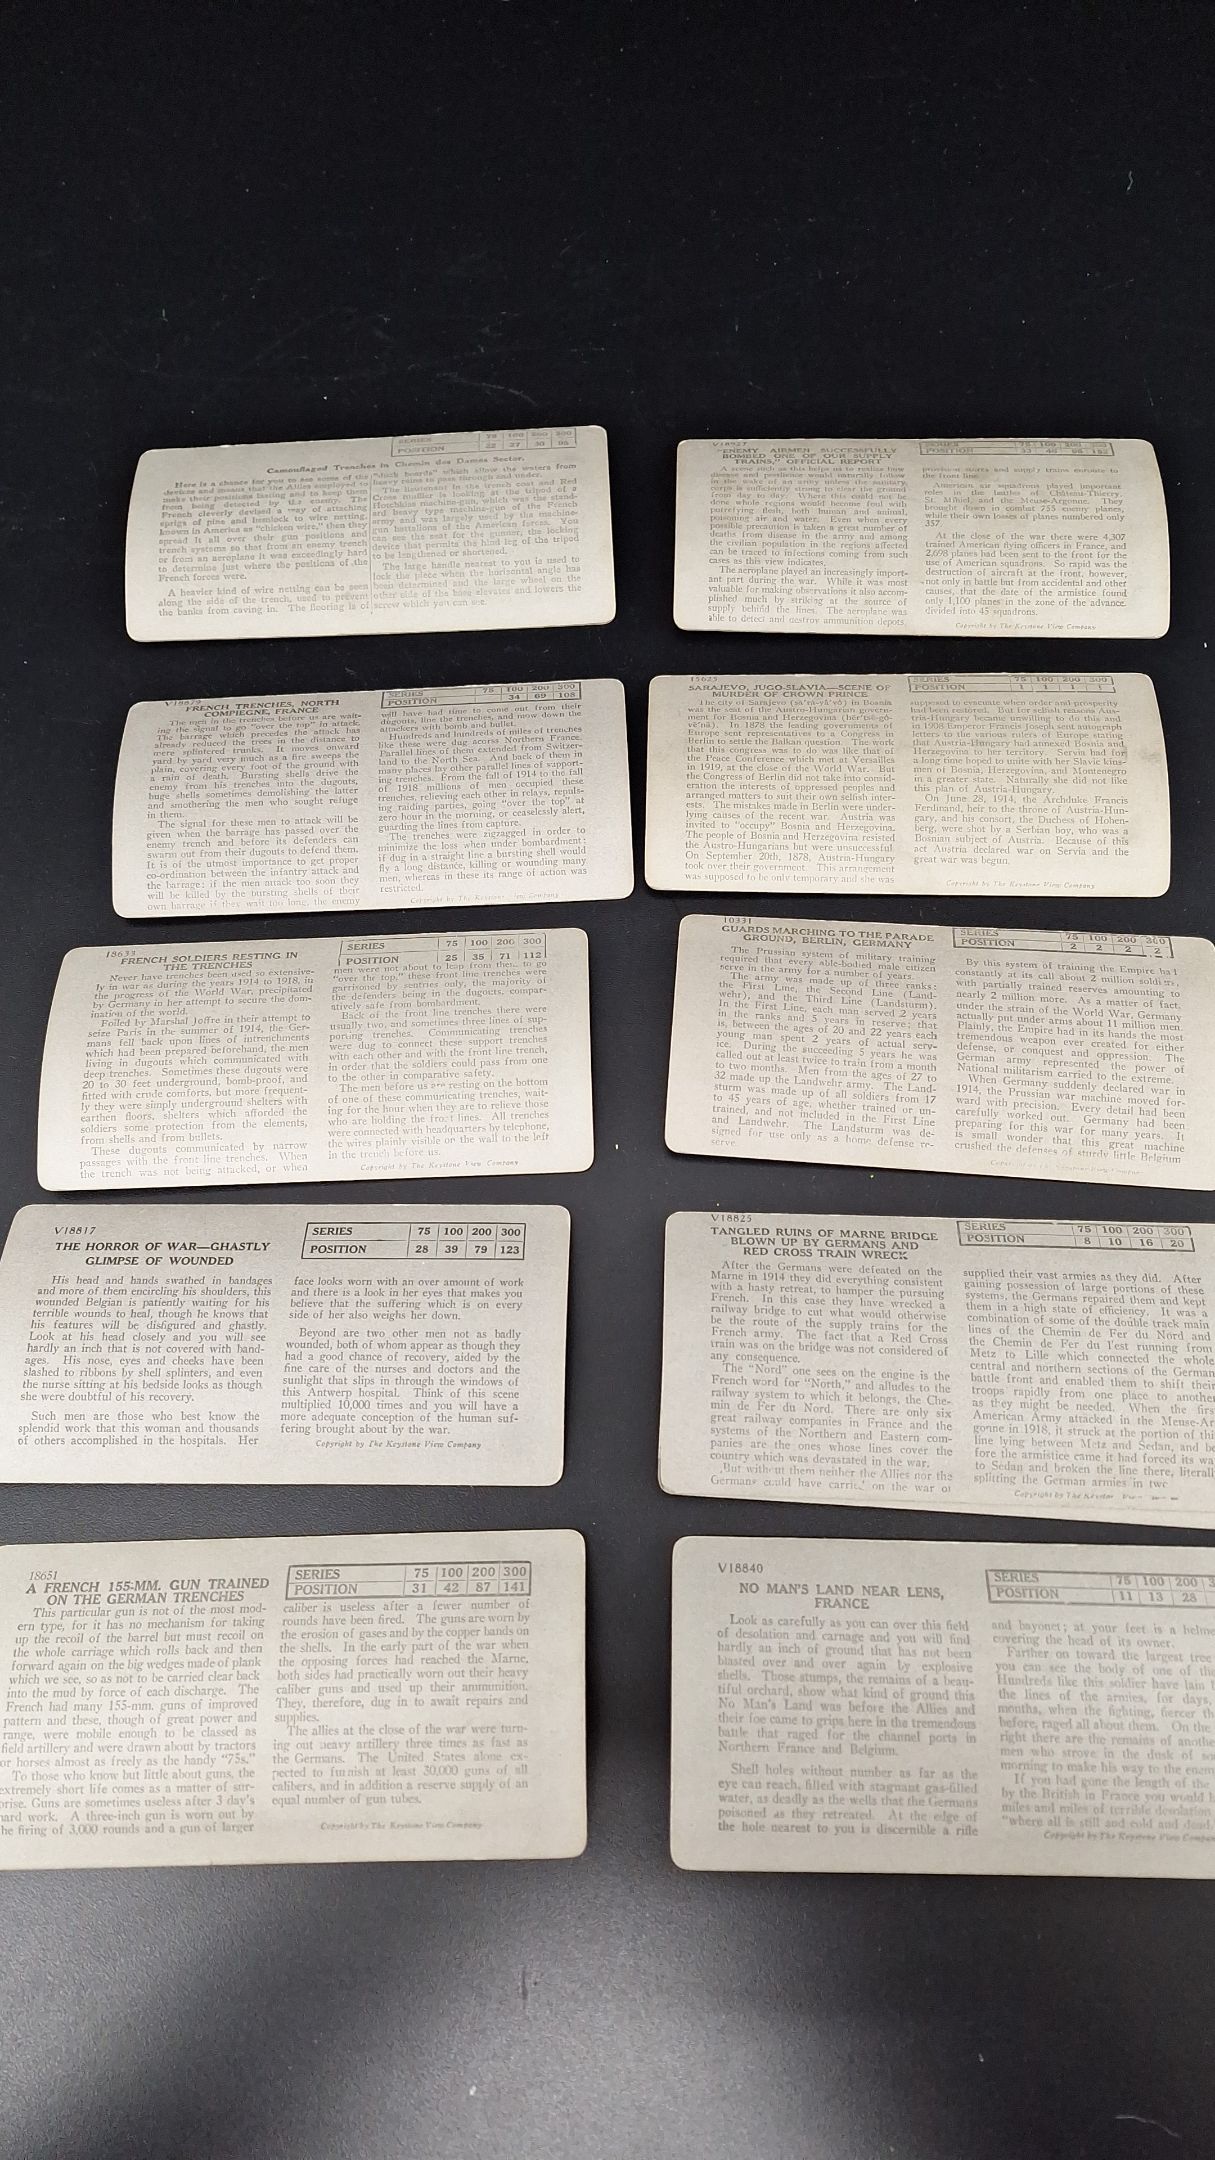 SERIES 75 100 200 300
POSITION 22 27 50 95
Camouflaged Trenches in Chemin des Dames Sector.
Here is a chance for you to see some of the
devices and means that the Allies employed to
make their positions lasting and to keep them
from being detected by the enemy. The
French cleverly devised a way of attaching
sprigs of pine and hemlock to wire netting,
known in America as "chicken wire," then they
spread it all over their gun positions and
trench systems so that from an enemy trench
or from an aeroplane it was exceedingly hard
to determine just where the positions of the
French forces were.
A heavier kind of wire netting can be seen
along the side of the trench, used to prevent
the banks from caving in. The flooring is of
"duck boards" which allow the waters from
heavy rains to pass through and under.
The lieutenant in the trench coat and Red
Cross muffler is looking at the tripod of a
Hotchkiss machine-gun, which was the stand-
ard heavy type machine-gun of the French
army and was largely used by the machine-
gun battalions of the American forces. You
can see the seat for the gunner, the locking
device that permits the hind leg of the tripod
to be lengthened or shortened.
The large handle nearest to you is used to
lock the piece when the horizontal angle has
been determined and the large wheel on the
other side of the base elevates and lowers the
screw which you can see.
V18927
"ENEMY AIRMEN SUCCESSFULLY
BOMBED ONE OF OUR SUPPLY
TRAINS," OFFICIAL REPORT
SERIES 75 100 200 300
POSITION
A scene such as this helps us to realize how
disease and pestilence would naturally follow
in the wake of an army unless the sanitary
corps is sufficiently strong to clear the ground
from day to day. Where this could not be
done whole regions would become foul with
putrefying flesh, both human and animal,
poisoning air and water. Even when every
possible precaution is taken a great number of
deaths from disease in the army and among
the civilian population in the regions affected
can be traced to infections coming from such
cases as this view indicates.
The aeroplane played an increasingly import-
ant part during the war. While it was most
valuable for making observations it also accom-
plished much by striking at the source of
supply behind the lines. The aeroplane was
able to detect and destroy ammunition depots,
provision stores and supply trains enroute to
the front line.
American air squadrons played important
roles in the battles of Château-Thierry,
St. Mihiel, and the Meuse-Argonne. They
brought down in combat 755 enemy planes,
while their own losses of planes numbered only
357.
At the close of the war there were 4,307
trained American flying officers in France, and
2,698 planes had been sent to the front for the
use of American squadrons. So rapid was the
destruction of aircraft at the front, however,
not only in battle but from accidental and other
causes, that the date of the armistice found
only 1,100 planes in the zone of the advance
divided into 45 squadrons.
Copyright by The Keystone View Company
V18879
FRENCH TRENCHES, NORTH
COMPIEGNE, FRANCE
SERIES 75 100 200 300
POSITION 34 69 108
The men in the trenches before us are wait-
ing the signal to go "over the top" to attack.
The barrage which precedes the attack has
already reduced the trees in the distance to
mere splintered trunks. It moves onward
yard by yard very much as a fire sweeps the
plain, covering every foot of the ground with
a rain of death. Bursting shells drive the
enemy from his trenches into the dugouts,
huge shells sometimes demolishing the latter
and smothering the men who sought refuge
in them.
The signal for these men to attack will be
given when the barrage has passed over the
enemy trench and before its defenders can
swarm out from their dugouts to defend them.
It is of the utmost importance to get proper
co-ordination between the infantry attack and
the barrage; if the men attack too soon they
will be killed by the bursting shells of their
own barrage if they wait too long, the enemy
will have had time to come out from their
dugouts, line the trenches, and mow down the
attackers with bomb and bullet.
Hundreds and hundreds of miles of trenches
like these were dug across Northern France.
Parallel lines of them extended from Switzer-
land to the North Sea. And back of them in
many places lay other parallel lines of support-
ing trenches. From the fall of 1914 to the fall
of 1918 millions of men occupied these
trenches, relieving each other in relays, repuls-
ing raiding parties, going "over the top" at
zero hour in the morning, or ceaselessly alert,
guarding the lines from capture.
The trenches were zigzagged in order to
minimize the loss when under bombardment;
if dug in a straight line a bursting shell would
fly a long distance, killing or wounding many
men, whereas in these its range of action was
restricted.
Copyright by The Keystone View Company
15625
SARAJEVO, JUGO-SLAVIA—SCENE OF
MURDER OF CROWN PRINCE
SERIES 75 100 200 300
POSITION 1 1 1 1
The city of Sarajevo (sä'rä-yā'vō) in Bosnia
was the seat of the Austro-Hungarian govern-
ment for Bosnia and Herzegovina (hĕr'tsĕ-gō-
vē'nä). In 1878 the leading governments of
Europe sent representatives to a Congress in
Berlin to settle the Balkan question. The work
that this congress was to do was like that of
the Peace Conference which met at Versailles
in 1919, at the close of the World War. But
the Congress of Berlin did not take into consid-
eration the interests of oppressed peoples and
arranged matters to suit their own selfish inter-
ests. The mistakes made in Berlin were under-
lying causes of the recent war. Austria was
invited to "occupy" Bosnia and Herzegovina.
The people of Bosnia and Herzegovina resisted
the Austro-Hungarians but were unsuccessful
On September 20th, 1878, Austria-Hungary
took over their government. This arrangement
was supposed to be only temporary and she was
supposed to evacuate when order and prosperity
had been restored. But for selfish reasons Aus-
tria-Hungary became unwilling to do this and
in 1908 Emperor Francis Joseph sent autograph
letters to the various rulers of Europe stating
that Austria-Hungary had annexed Bosnia and
Herzegovina to her territory. Servia had for
a long time hoped to unite with her Slavic kins-
men of Bosnia, Herzegovina, and Montenegro
in a greater state. Naturally she did not like
this plan of Austria-Hungary.
On June 28, 1914, the Archduke Francis
Ferdinand, heir to the throne of Austria-Hun-
gary, and his consort, the Duchess of Hohen-
berg, were shot by a Serbian boy, who was a
Bosnian subject of Austria. Because of this
act Austria declared war on Servia and the
great war was begun.
Copyright by The Keystone View Company
18633
FRENCH SOLDIERS RESTING IN
THE TRENCHES
SERIES 75 100 200 300
POSITION 25 35 71 112
Never have trenches been used so extensive-
ly in war as during the years 1914 to 1918, in
the progress of the World War, precipitated
by Germany in her attempt to secure the dom-
ination of the world.
Foiled by Marshal Joffre in their attempt to
seize Paris in the summer of 1914, the Ger-
mans fell back upon lines of intrenchments
which had been prepared beforehand, the men
living in dugouts which communicated with
deep trenches. Sometimes these dugouts were
20 to 30 feet underground, bomb-proof, and
fitted with crude comforts, but more frequent-
ly they were simply underground shelters with
earthen floors, shelters which afforded the
soldiers some protection from the elements,
from shells and from bullets.
These dugouts communicated by narrow
passages with the front line trenches. When
the trench was not being attacked, or when
men were not about to leap from them to go
"over the top," these front line trenches were
garrisoned by sentries only, the majority of
the defenders being in the dugouts, compar-
atively safe from bombardment.
Back of the front line trenches there were
usually two, and sometimes three lines of sup-
porting trenches. Communicating trenches
were dug to connect these support trenches
with each other and with the front line trench,
in order that the soldiers could pass from one
to the other in comparative safety.
The men before us are resting on the bottom
of one of these communicating trenches, wait-
ing for the hour when they are to relieve those
who are holding the front lines. All trenches
were connected with headquarters by telephone,
the wires plainly visible on the wall to the left
in the trench before us.
Copyright by The Keystone View Company
10331
GUARDS MARCHING TO THE PARADE
GROUND, BERLIN, GERMANY
SERIES 75 100 200 300
POSITION 2 2 2 2
The Prussian system of military training
required that every able-bodied male citizen
serve in the army for a number of years.
The army was made up of three ranks:
the First Line, the Second Line (Land-
wehr), and the Third Line (Landsturm).
In the First Line, each man served 2 years
in the ranks and 5 years in reserve; that
is, between the ages of 20 and 22 years each
young man spent 2 years of actual serv-
ice. During the succeeding 5 years he was
called out at least twice to train from a month
to two months. Men from the ages of 27 to
32 made up the Landwehr army. The Land-
sturm was made up of all soldiers from 17
to 45 years of age, whether trained or un-
trained, and not included in the First Line
and Landwehr. The Landsturm was de-
signed for use only as a home defense re-
serve.
By this system of training the Empire had
constantly at its call about 2 million soldiers,
with partially trained reserves amounting to
nearly 2 million more. As a matter of fact,
under the strain of the World War, Germany
actually put under arms about 11 million men.
Plainly, the Empire had in its hands the most
tremendous weapon ever created for either
defense, or conquest and oppression. The
German army represented the power of
National militarism carried to the extreme.
When Germany suddenly declared war in
1914, the Prussian war machine moved for-
ward with precision. Every detail had been
carefully worked out. Germany had been
preparing for this war for many years. It
is small wonder that this great machine
crushed the defenses of sturdy little Belgium
V18817
THE HORROR OF WAR—GHASTLY
GLIMPSE OF WOUNDED
SERIES 75 100 200 300
POSITION 28 39 79 123
His head and hands swathed in bandages
and more of them encircling his shoulders, this
wounded Belgian is patiently waiting for his
terrible wounds to heal, though he knows that
his features will be disfigured and ghastly.
Look at his head closely and you will see
hardly an inch that is not covered with band-
ages. His nose, eyes and cheeks have been
slashed to ribbons by shell splinters, and even
the nurse sitting at his bedside looks as though
she were doubtful of his recovery.
Such men are those who best know the
splendid work that this woman and thousands
of others accomplished in the hospitals. Her
face looks worn with an over amount of work
and there is a look in her eyes that makes you
believe that the suffering which is on every
side of her also weighs her down.
Beyond are two other men not as badly
wounded, both of whom appear as though they
had a good chance of recovery, aided by the
fine care of the nurses and doctors and the
sunlight that slips in through the windows of
this Antwerp hospital. Think of this scene
multiplied 10,000 times and you will have a
more adequate conception of the human suf-
fering brought about by the war.
Copyright by The Keystone View Company
V18825
TANGLED RUINS OF MARNE BRIDGE
BLOWN UP BY GERMANS AND
RED CROSS TRAIN WRECK
SERIES 75 100 200 300
POSITION 8 10 16 20
After the Germans were defeated on the
Marne in 1914 they did everything consistent
with a hasty retreat, to hamper the pursuing
French. In this case they have wrecked a
railway bridge to cut what would otherwise
be the route of the supply trains for the
French army. The fact that a Red Cross
train was on the bridge was not considered of
any consequence.
The "Nord" one sees on the engine is the
French word for "North," and alludes to the
railway system to which it belongs, the Che-
min de Fer du Nord. There are only six
great railway companies in France and the
systems of the Northern and Eastern com-
panies are the ones whose lines cover the
country which was devastated in the war.
But without them neither the Allies nor the
Germans could have carried on the war or
supplied their vast armies as they did. After
gaining possession of large portions of these
systems, the Germans repaired them and kept
them in a high state of efficiency. It was a
combination of some of the double track main
lines of the Chemin de Fer du Nord and
the Chemin de Fer du l'est running from
Metz to Lille which connected the whole
central and northern sections of the German
battle front and enabled them to shift their
troops rapidly from one place to another
as they might be needed. When the firs
American Army attacked in the Meuse-Ar
gonne in 1918, it struck at the portion of thi
line lying between Metz and Sedan, and be
fore the armistice came it had forced its wa
to Sedan and broken the line there, literall
splitting the German armies in two
Copyright by The Keystone
18651
A FRENCH 155-MM. GUN TRAINED
ON THE GERMAN TRENCHES
SERIES 75 100 200 300
POSITION 31 42 87 141
This particular gun is not of the most mod-
ern type, for it has no mechanism for taking
up the recoil of the barrel but must recoil on
the whole carriage which rolls back and then
forward again on the big wedges made of plank
which we see, so as not to be carried clear back
into the mud by force of each discharge. The
French had many 155-mm. guns of improved
pattern and these, though of great power and
range, were mobile enough to be classed as
field artillery and were drawn about by tractors
or horses almost as freely as the handy "75s."
To those who know but little about guns, the
extremely short life comes as a matter of sur-
prise. Guns are sometimes useless after 3 day's
hard work. A three-inch gun is worn out by
he firing of 3,000 rounds and a gun of larger
caliber is useless after a fewer number of
rounds have been fired. The guns are worn by
the erosion of gases and by the copper bands on
the shells. In the early part of the war when
the opposing forces had reached the Marne,
both sides had practically worn out their heavy
caliber guns and used up their ammunition.
They, therefore, dug in to await repairs and
supplies.
The allies at the close of the war were turn-
ing out heavy artillery three times as fast as
the Germans. The United States alone ex-
pected to furnish at least 30,000 guns of all
calibers, and in addition a reserve supply of an
equal number of gun tubes.
Copyright by The Keystone View Company
V18840
NO MAN'S LAND NEAR LENS,
FRANCE
SERIES 75 100 200 3
POSITION 11 13 28
Look as carefully as you can over this field
of desolation and carnage and you will find
hardly an inch of ground that has not been
blasted over and over again by explosive
shells. Those stumps, the remains of a beau-
tiful orchard, show what kind of ground this
No Man's Land was before the Allies and
their foe came to grips here in the tremendous
battle that raged for the channel ports in
Northern France and Belgium.
Shell holes without number as far as the
eye can reach, filled with stagnant gas-filled
water, as deadly as the wells that the Germans
poisoned as they retreated. At the edge of
the hole nearest to you is discernible a rifle
and bayonet; at your feet is a helme
covering the head of its owner.
Farther on toward the largest tree
you can see the body of one of the
Hundreds like this soldier have lain
the lines of the armies, for days,
months, when the fighting, fiercer th
before, raged all about them. On the
right there are the remains of anothe
men who strove in the dusk of so
morning to make his way to the enem
If you had gone the length of the
by the British in France you would h
miles and miles of terrible desolation
"where all is still and cold and dead.
Copyright by The Keystone View Compan